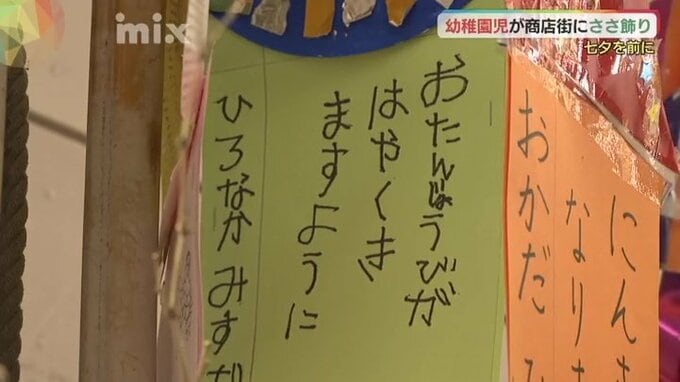 mix
幼稚園児が商店街にささ飾り
七夕を前に
おたんじょうびが
はやくき
ますように
ひろなか みすず
にん
なりま
おかだ